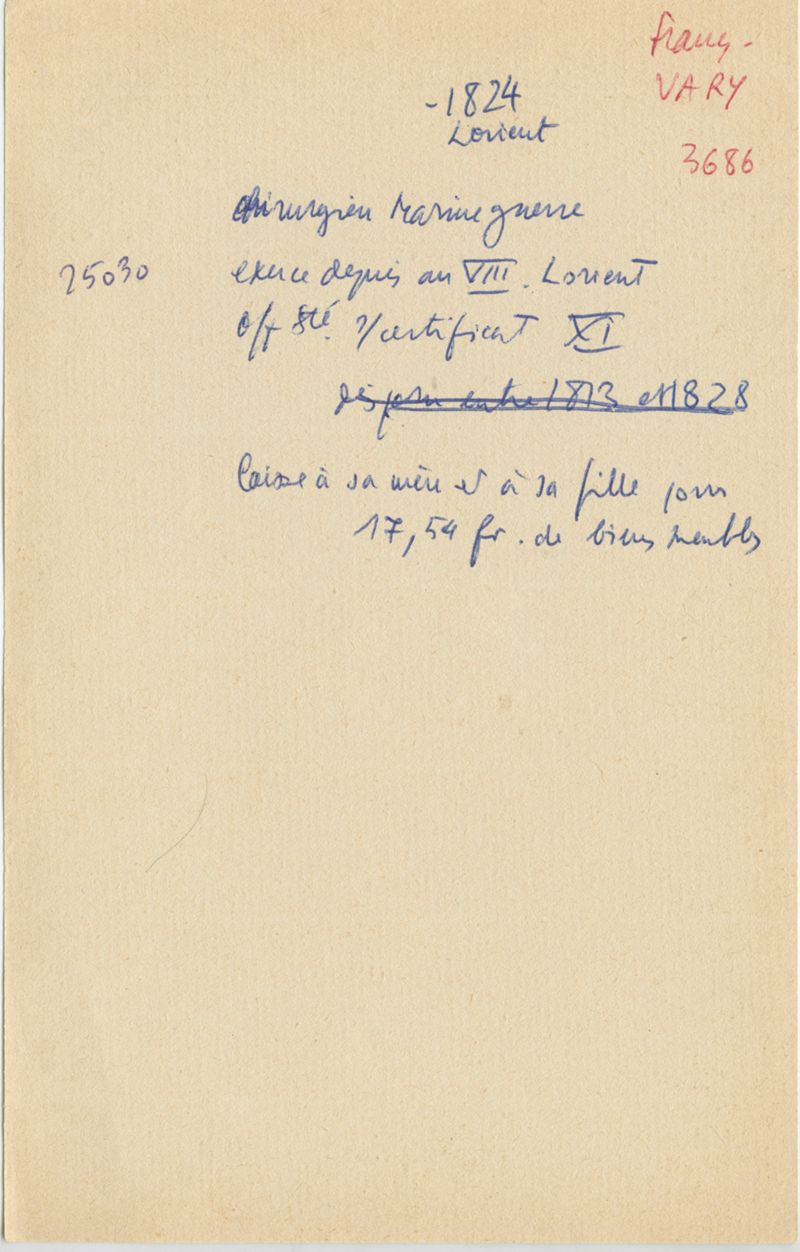 Franç-
VARY
3686
-1824
Lorient
chirurgien Marine guerre
25030 exerce depuis an VIII. Lorient
off Sté s/certificat XI
disparu entre 1813 et 1828
laisse à sa mère et à sa fille pour
17,54 fr. de biens meubles